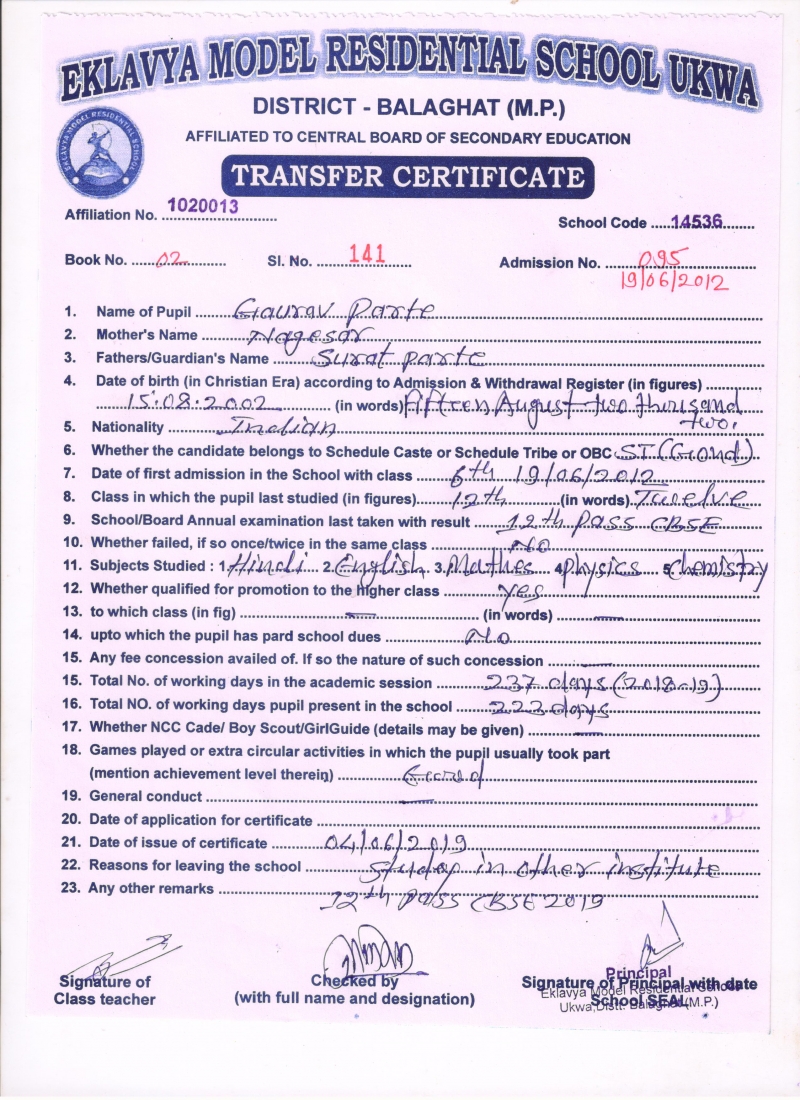 EKLAVYA MODEL RESIDENTIAL SCHOOL UKWA
DISTRICT - BALAGHAT (M.P.)
AFFILIATED TO CENTRAL BOARD OF SECONDARY EDUCATION
EKLAVYA MODEL RESIDENTIAL SCHOOL
TRANSFER CERTIFICATE
Affiliation No. 1020013
School Code 14536
Book No. 02 Sl. No. 141 Admission No. 095
19/06/2012
1. Name of Pupil Gaurav Parte
2. Mother's Name Nagesar
3. Fathers/Guardian's Name Surat parte
4. Date of birth (in Christian Era) according to Admission & Withdrawal Register (in figures)
15.08.2002 (in words) Fifteen August two thousand
two.
5. Nationality Indian
6. Whether the candidate belongs to Schedule Caste or Schedule Tribe or OBC ST (Gond)
7. Date of first admission in the School with class 6th 19/06/2012
8. Class in which the pupil last studied (in figures) 12th (in words) Twelve
9. School/Board Annual examination last taken with result 12th pass CBSE
10. Whether failed, if so once/twice in the same class No
11. Subjects Studied : 1. Hindi 2. English 3. Mathes 4. physics 5. Chemistry
12. Whether qualified for promotion to the higher class yes
13. to which class (in fig) — (in words) —
14. upto which the pupil has pard school dues No
15. Any fee concession availed of. If so the nature of such concession —
15. Total No. of working days in the academic session 237 days (2018-19)
16. Total NO. of working days pupil present in the school 222 days
17. Whether NCC Cade/ Boy Scout/GirlGuide (details may be given) —
18. Games played or extra circular activities in which the pupil usually took part
(mention achievement level therein) Good
19. General conduct —
20. Date of application for certificate
21. Date of issue of certificate 04/06/2019
22. Reasons for leaving the school study in other institute
23. Any other remarks 12th pass CBSE 2019
Signature of
Class teacher
Checked by
(with full name and designation)
Principal
Signature of Principal with date
Eklavya Model Residential School
School SEAL
Ukwa, Distt. Balaghat (M.P.)